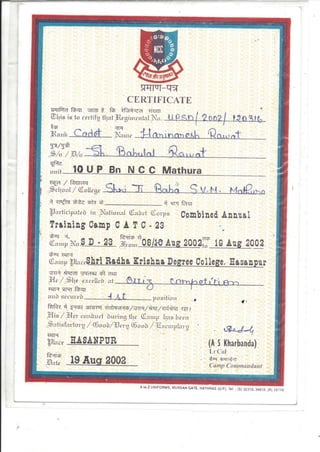 NCC
प्रमाण-पत्र
CERTIFICATE
प्रमाणित किया जाता है कि रेजिमेन्टल संख्या
This is to certify that Regimental No. UPSD/2002/120316
रैंक नाम
Rank Cadet Name Harinanesh Rawat
पुत्र/पुत्री
S/o / D/o Sh. Babulal Rawat
यूनिट
unit 10 U P Bn N C C Mathura
स्कूल / विद्यालय
School / College Shri Ji Baba S.V.M. Mathura
ने राष्ट्रीय कैडेट कोर के में भाग लिया
Participated in National Cadet Corps Combined Annual
Training Camp C A T C - 23
कैम्प नं. दिनांक से
Camp No. S D - 23 From 08/10 Aug 2002 to 19 Aug 2002
कैम्प स्थान
Camp Place Shri Radha Krishna Degree College, Hasanpur
He / She excelled at Quiz competition
स्थान प्राप्त किया
and secured 1st position
His / Her conduct during the Camp has been
Satisfactory / Good/Very Good / Exemplary
स्थान
Place HASANPUR
(A S Kharbanda)
Lt Col
कैम्प कमान्डेंट
Camp Commandant
दिनांक
Date 19 Aug 2002